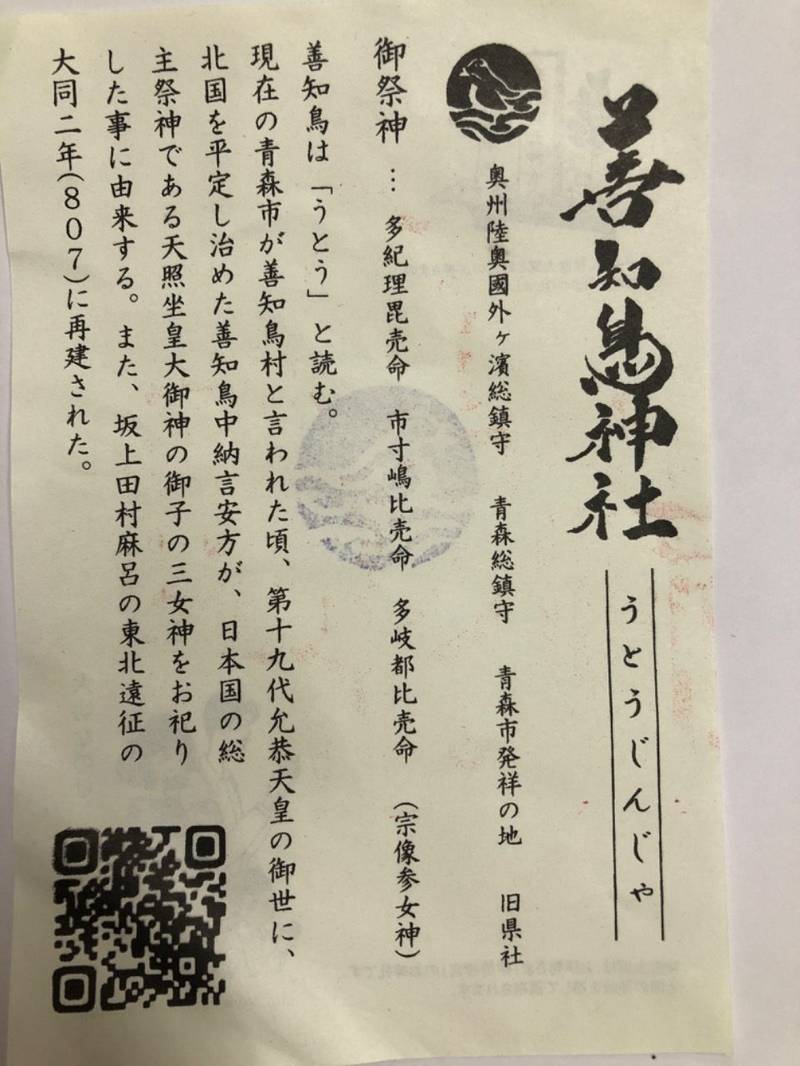 善知鳥神社
うとうじんじゃ
奥州陸奥國外ヶ濱総鎮守 青森総鎮守 青森市発祥の地 旧県社
御祭神 … 多紀理毘売命 市寸嶋比売命 多岐都比売命 (宗像参女神)
善知鳥は「うとう」と読む。
現在の青森市が善知鳥村と言われた頃、第十九代允恭天皇の御世に、
北国を平定し治めた善知鳥中納言安方が、日本国の総
主祭神である天照坐皇大御神の御子の三女神をお祀り
した事に由来する。また、坂上田村麻呂の東北遠征の
大同二年(807)に再建された。